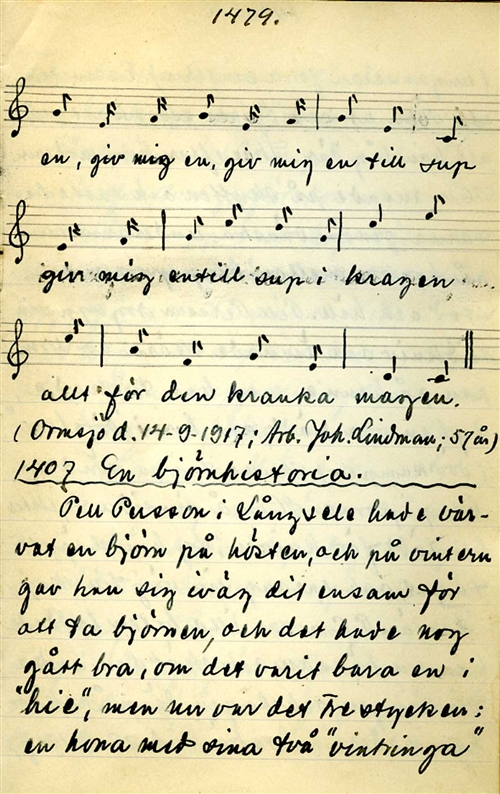 1479.
en, giv mig en, giv mig en till sup
giv mig en till sup i kragen
allt för den kranka magen.
(Ormsjö d. 14-9-1917; Arb. Joh. Lindman; 57 år)
1407 En björnhistoria.
Pell Persson i Långsele hade vär-
vat en björn på hösten, och på vintern
gav han sig iväg dit ensam för
att ta björnen, och det hade nog
gått bra, om det varit bara en i
"hie", men nu var det tre stycken:
en hona med sina två "vintringa"